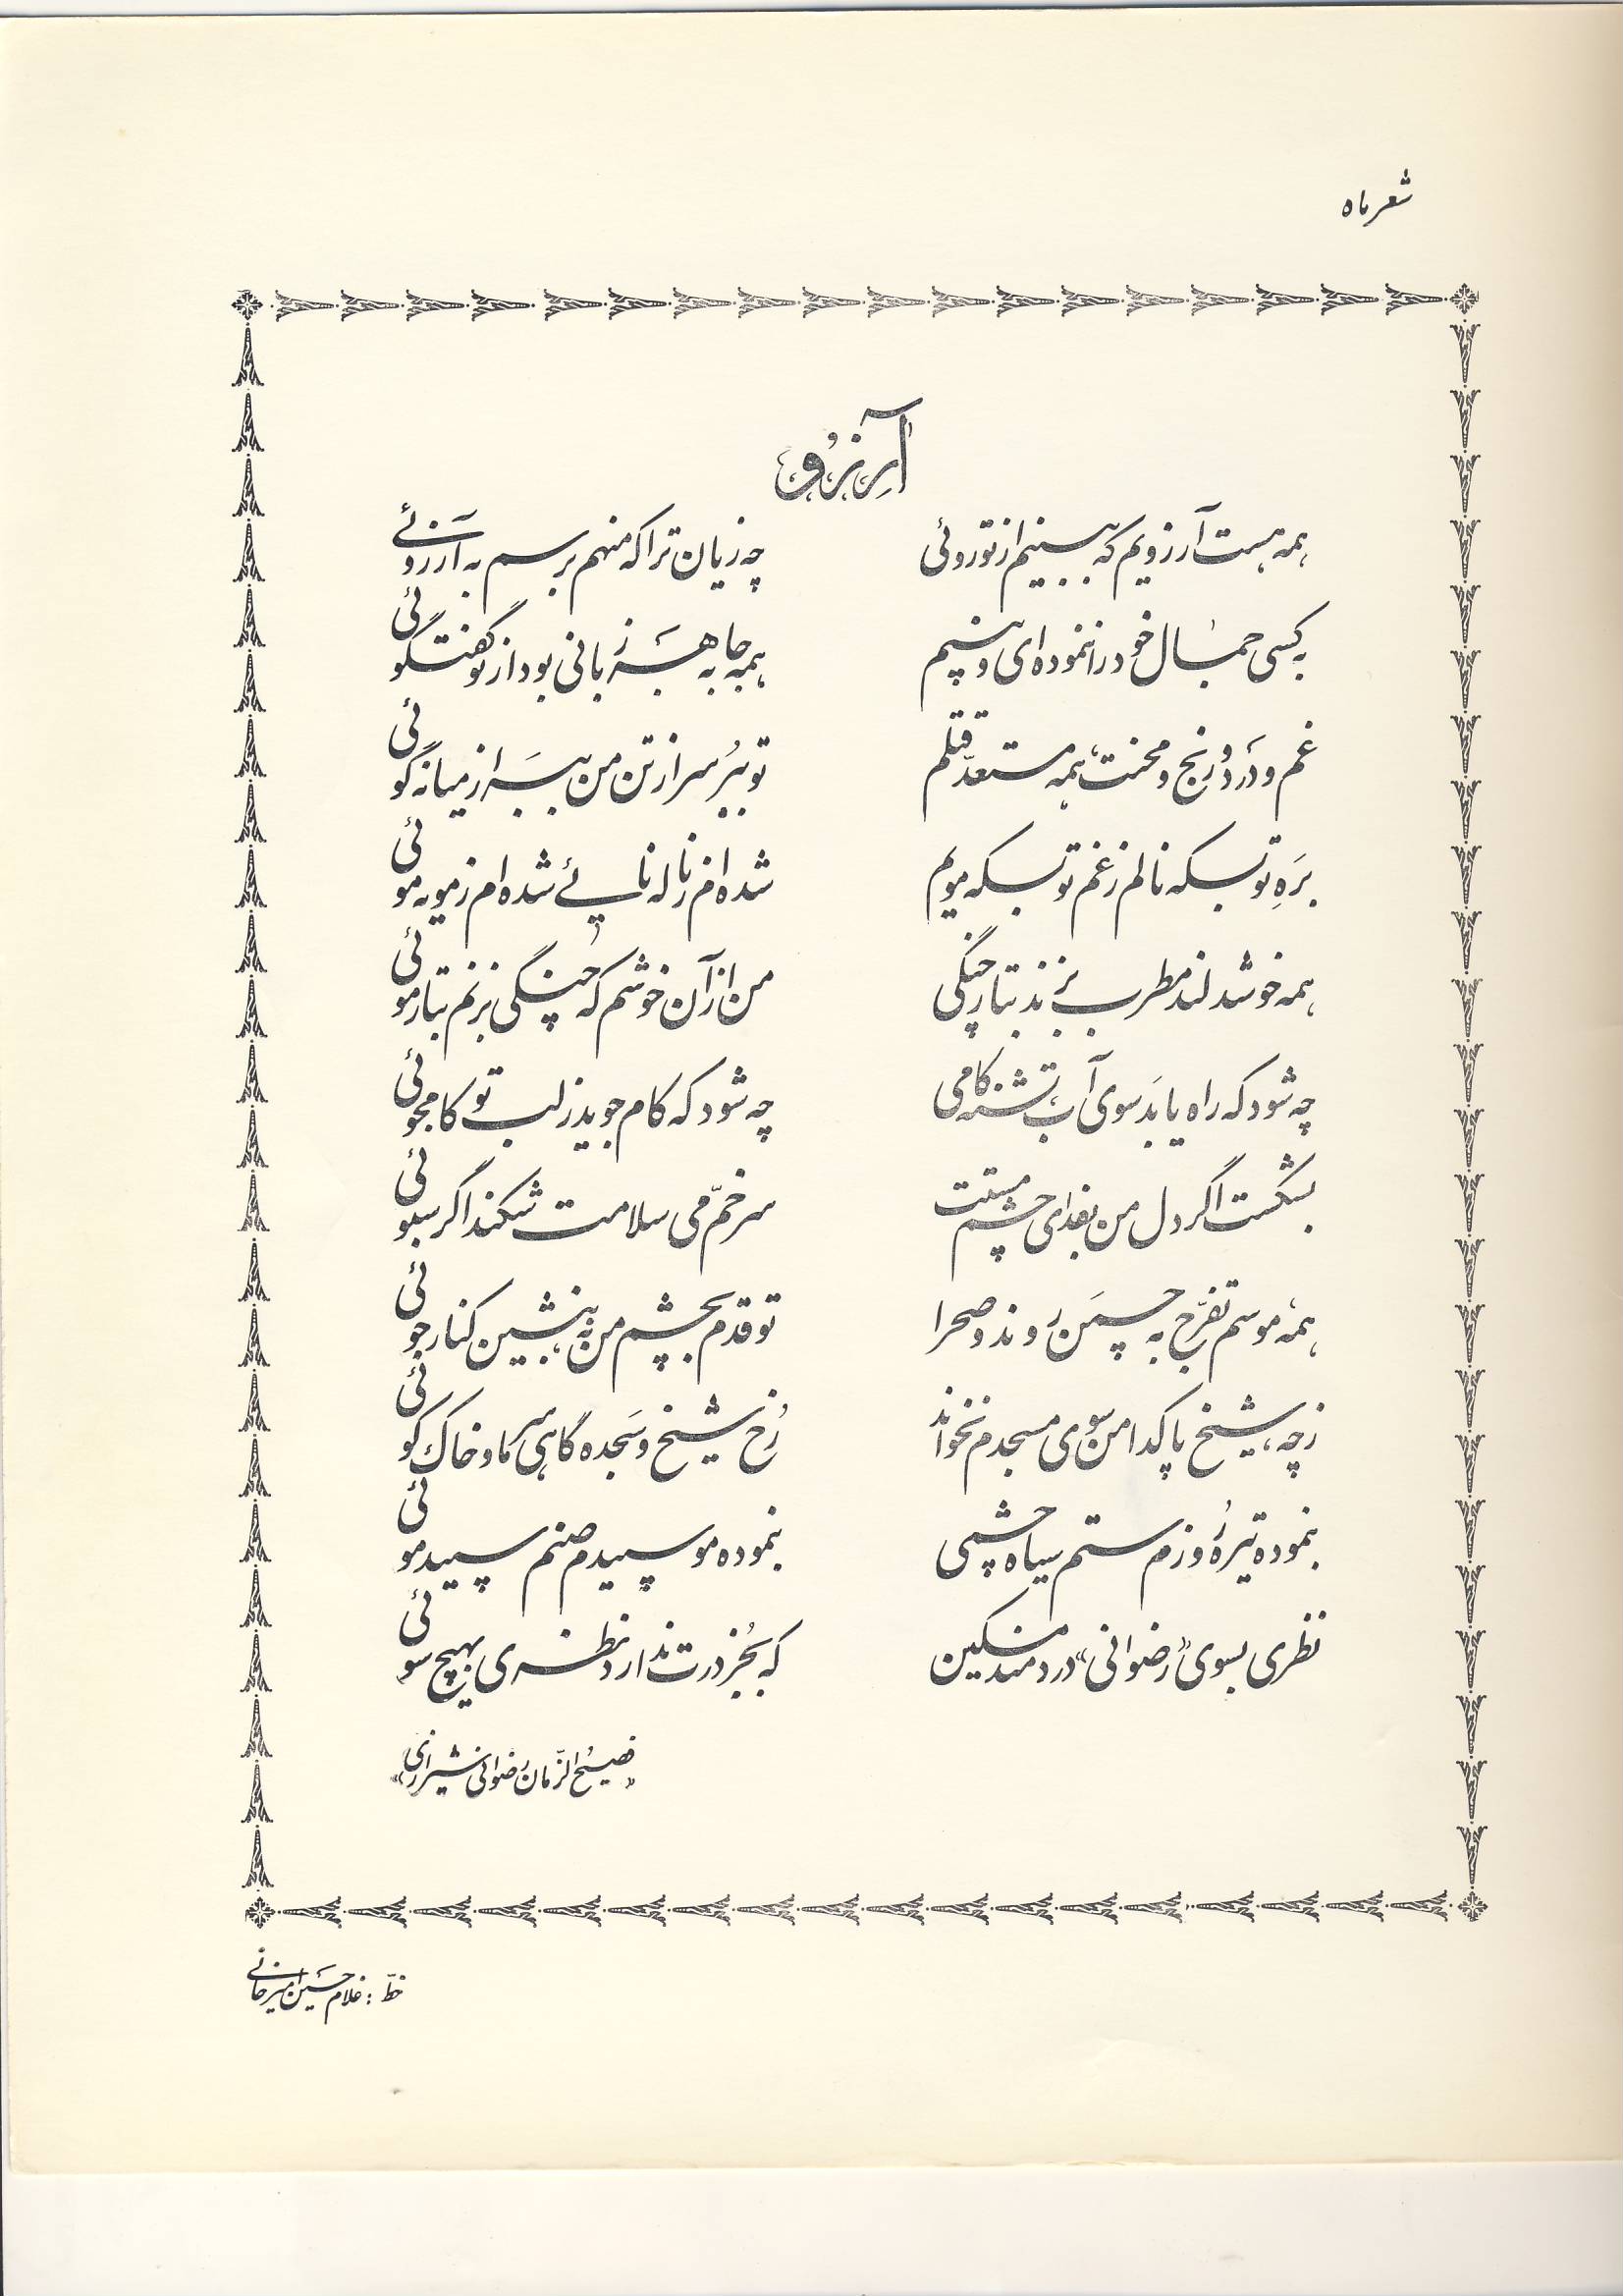 شعر ماه
آرزو
همه هست آرزویم که ببینم از تو روئی چه زیان ترا که منهم برسم به آرزوئی
به کسی جمال خود را ننموده‌ای و بینم همه جا به هر زبانی بود از تو گفتگوئی
غم و درد و رنج و محنت همه مستعدّ قتلم تو ببُر سر از تن من ببَر از میانه گوئی
برَهِ تو بسکه نالم ز غم تو بسکه مویم شده‌ام ز ناله نایی شده‌ام ز مویه موئی
همه خوشدلند مطرب بزند بتار چنگی من از آن خوشم که چنگی بزنم بتار موئی
چه شود که راه یابَد سوی آب تشنه کامی چه شود که کام جوید ز لب تو کامجوئی
بشکست اگر دل من بفدای چشم مستت سر خمّ می سلامت شکند اگر سبوئی
همه موسم تفرّج به چمَن روند و صحرا تو قدم بچشم من نه بنشین کنار جوئی
ز چه شیخ پاکدامن سوی مسجدم نخواند رُخ شیخ و سَجده گاهی سر ما و خاک کوئی
بنموده تیره روزم ستم سیاه چشمی بنموده مو سپیدم صنم سپید موئی
نظری بسوی «رضوانی» دردمند مسکین که بجُز درت ندارد نظری بهیچ سوئی
«فصیحُ الزّمان رضوانی شیرازی»
خطّ : غلامحسین امیرخانی